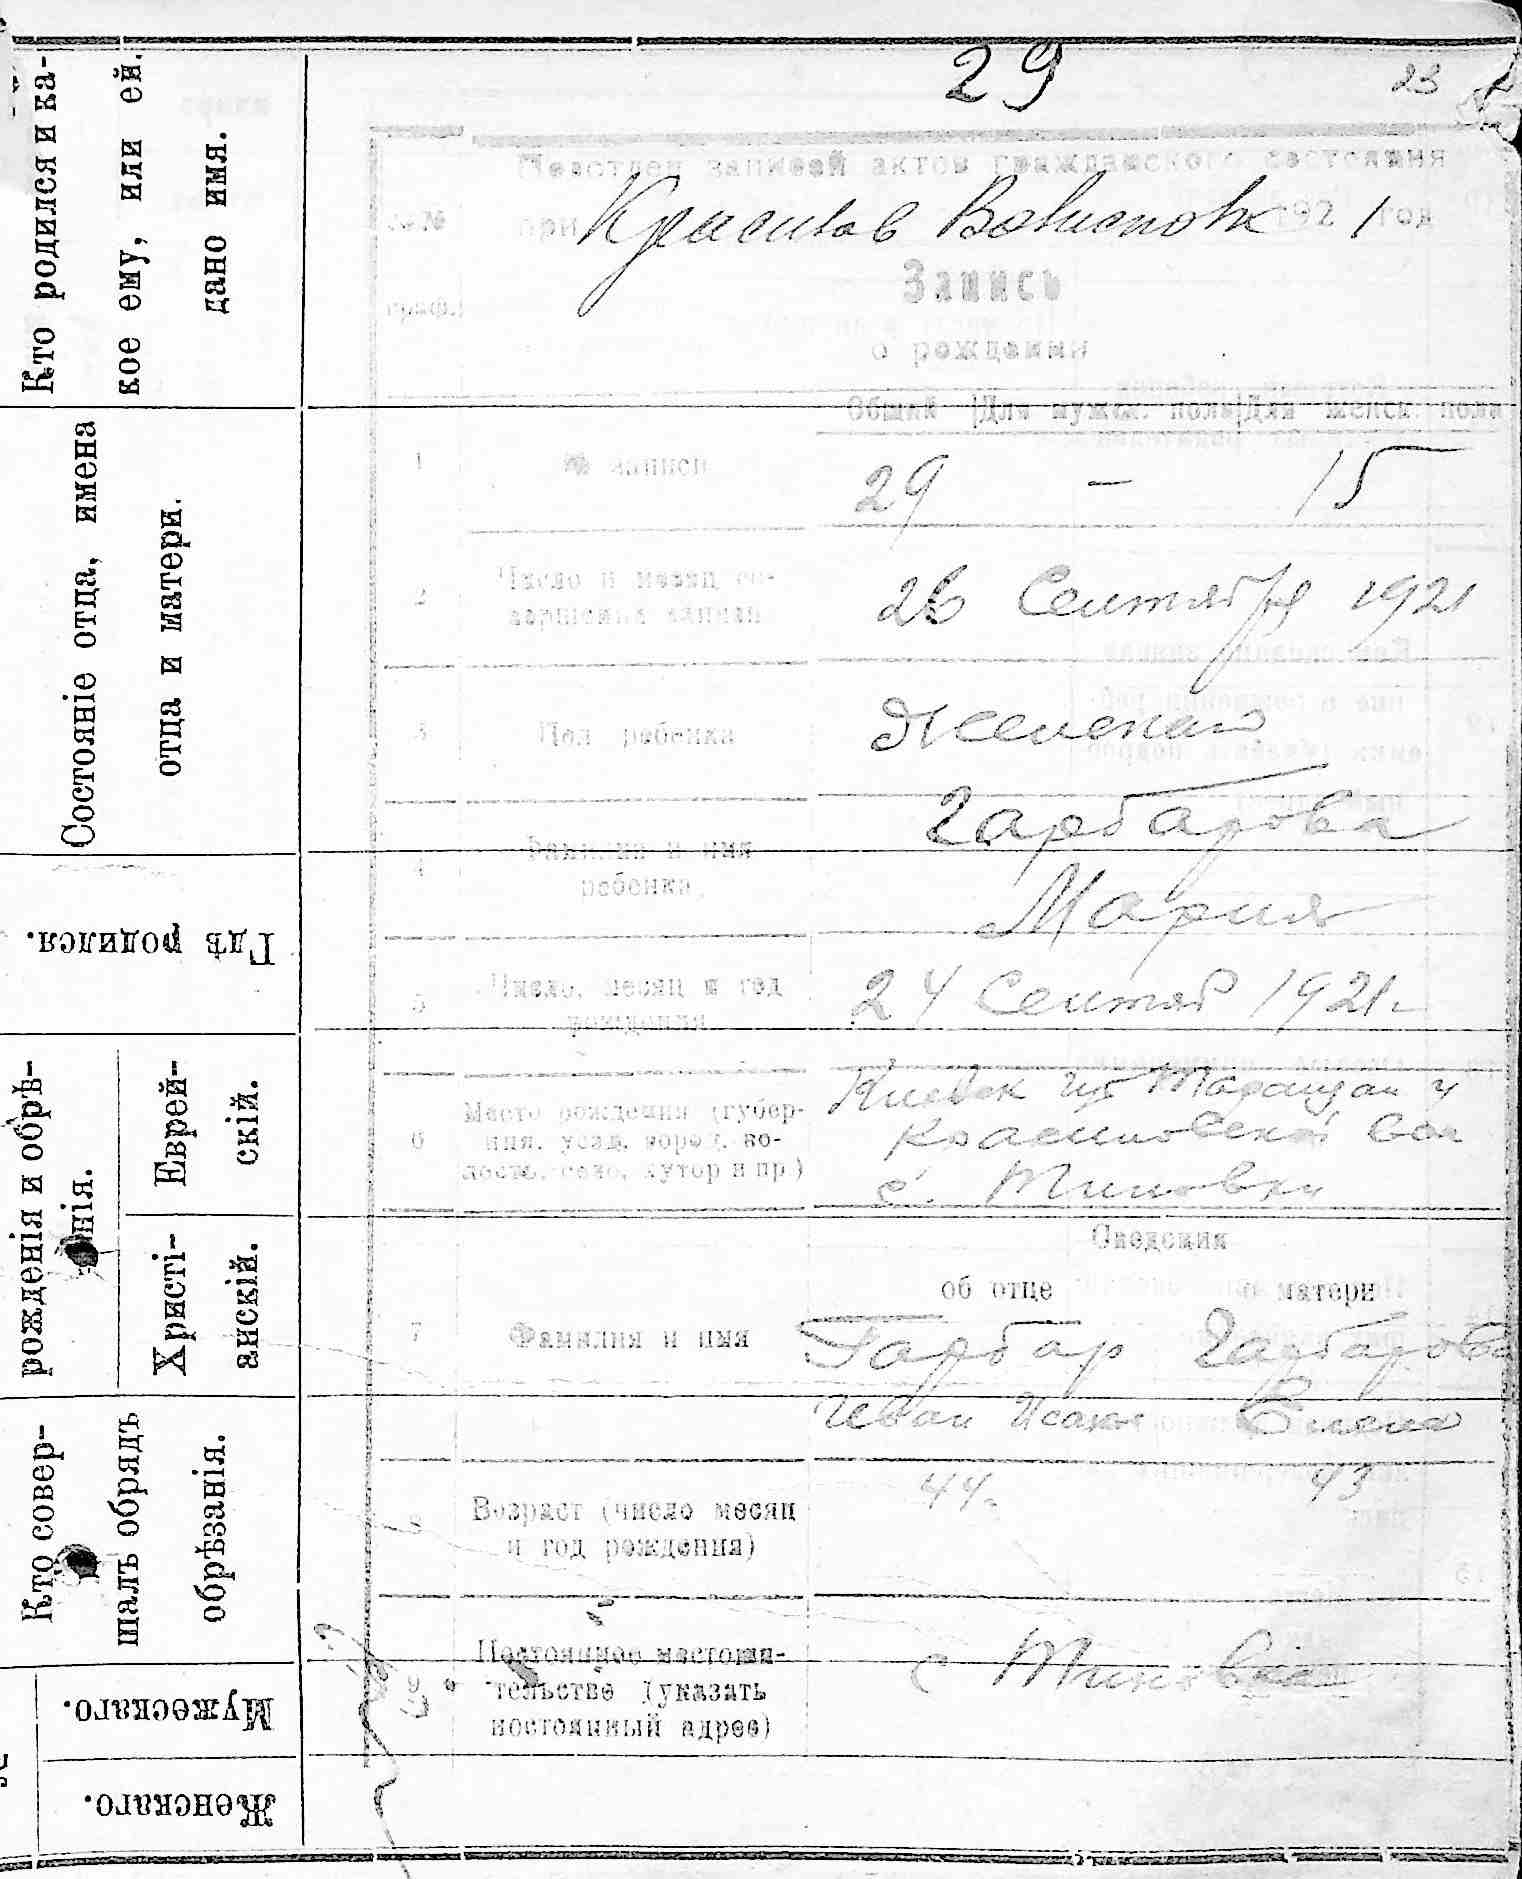 29
23
Кто родился и ка-
кое ему, или ей,
дано имя.
Состояніе отца, имена
отца и матери.
Гдѣ родился.
рожденія и обрѣ-
нія.
Еврей-
скій.
Христі-
анскій.
Кто совер-
шалъ обрядъ
обрѣзанія.
Мужескаго.
Женскаго.
Подотдел записей актов гражданского состояния
№№ при 1921 год
граф.
Запись
о рождении
Общий Для мужск. пола Для женск. пола
1 № записи 29 — 15
2 Число и месяц со-
вершения записи
26 Сентября 1921
3 Пол ребенка Женский
4 Фамилия и имя
ребенка
Гарбарова
Мария
5 Число, месяц и год
рождения
24 Сентяб 1921 г
6 Место рождения (губер-
ния, уезд, город, во-
лость, село, хутор и пр.)
Киевск губ Таращан у
вол
с.
Сведения
об отце о матери
7 Фамилия и имя Гарбар Гарбарова
Иван Елена
8 Возраст (число месяц
и год рождения)
44 43
Постоянное местожи-
тельство (указать
постоянный адрес)
с